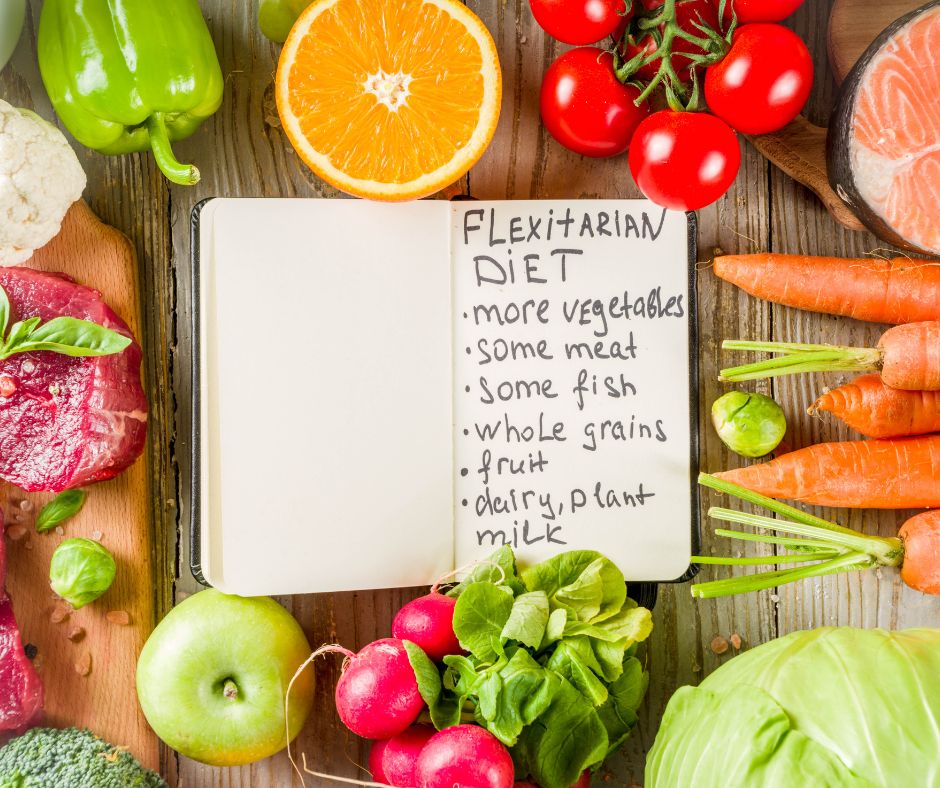 FLEXitARiAN
DiET
• more vegetables
• some meat
• some fish
• whole grains
• fruit
• dairy, plant
milk